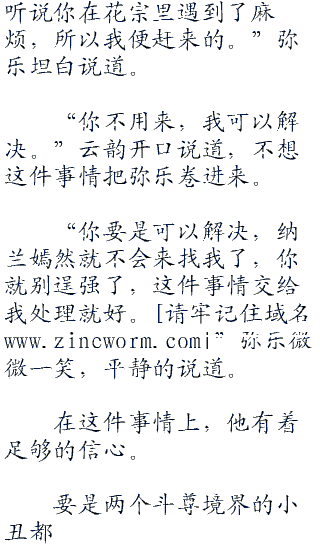 听说你在花宗里遇到了麻
烦，所以我便赶来的。”弥
乐坦白说道。
“你不用来，我可以解
决。”云韵开口说道，不想
这件事情把弥乐卷进来。
“你要是可以解决，纳
兰嫣然就不会来找我了，你
就别逞强了，这件事情交给
我处理就好。[请牢记住域名
www.zincworm.com|”弥乐微
微一笑，平静的说道。
在这件事情上，他有着
足够的信心。
要是两个斗尊境界的小
丑都